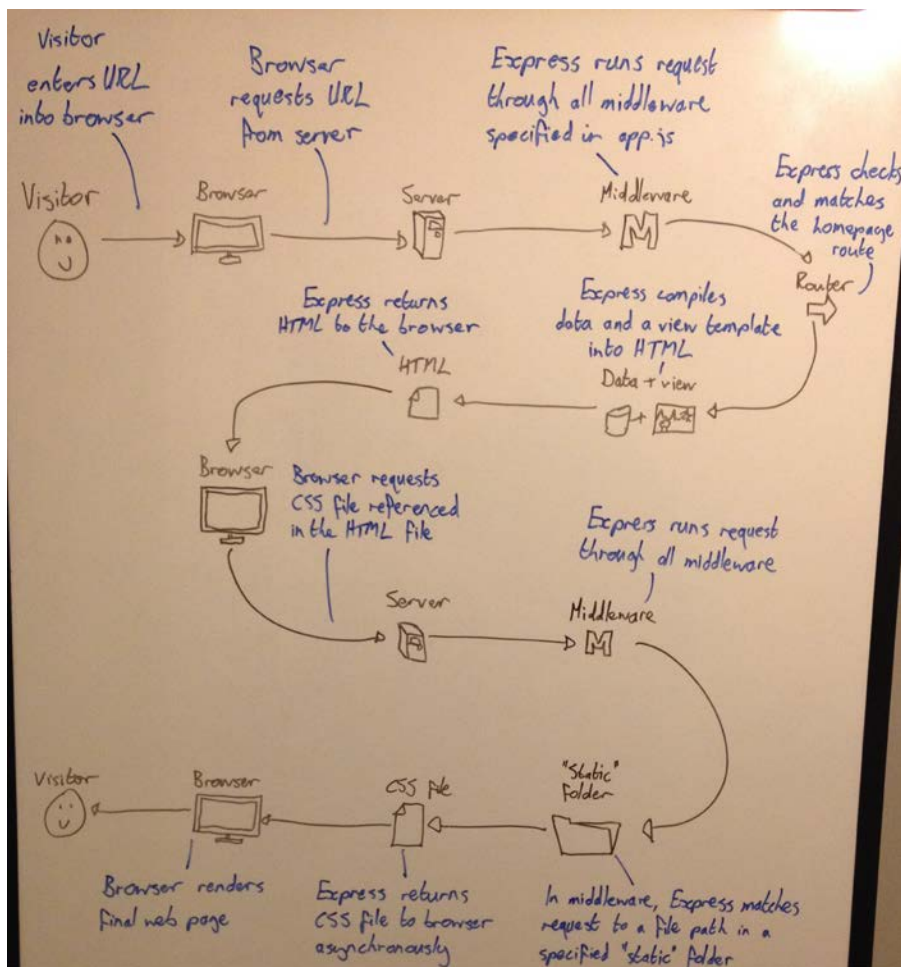 Visitor
enters URL
into browser
Browser
requests URL
from server
Express runs request
through all middleware
specified in app.js
Express checks
and matches
the homepage
route
Visitor
Browser
Server
Middleware
M
Router
Express returns
HTML to the browser
Express compiles
data and a view template
into HTML
HTML
Data + view
+
Browser
Browser requests
CSS file referenced
in the HTML file
Express runs request
through all middleware
Server
Middleware
M
Visitor
Browser
CSS file
"Static"
folder
Browser renders
final web page
Express returns
CSS file to browser
asynchronously
In middleware, Express matches
request to a file path in a
specified "static" folder